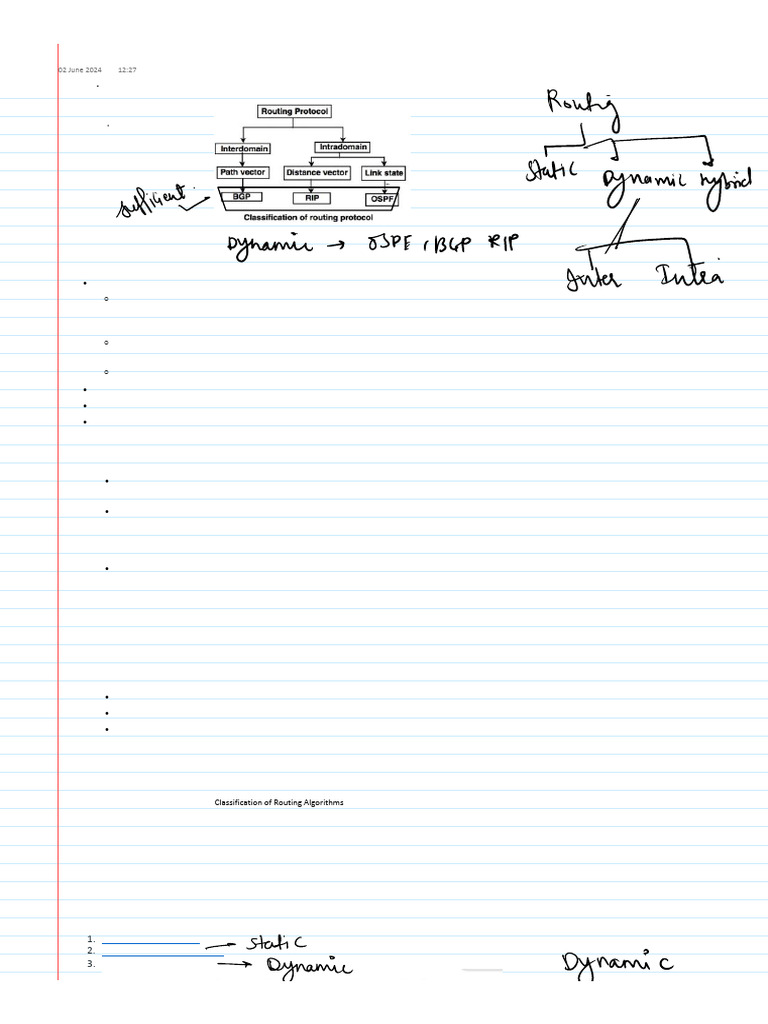 02 June 2024 12:27
Routing Protocol
Interdomain Intradomain
Path vector Distance vector Link state
BGP RIP OSPF
Classification of routing protocol
sufficient
Dynamic → OSPF, BGP RIP
Routing
Static Dynamic hybrid
Inter Intra
Classification of Routing Algorithms
1.
2. → Static
3. → Dynamic
Dynamic